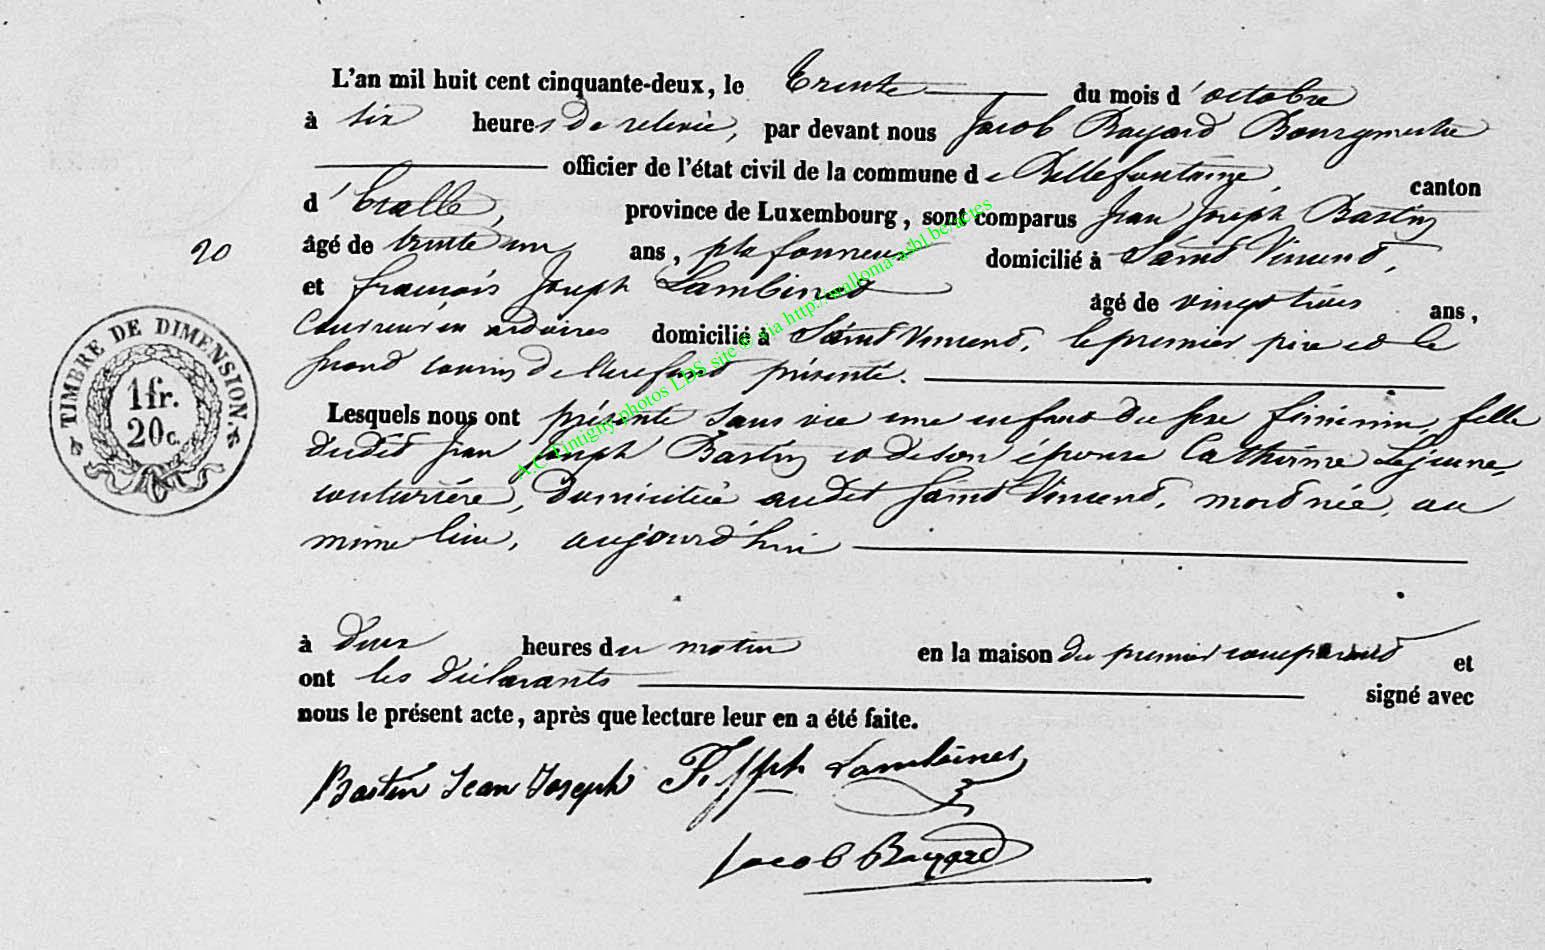 L'an mil huit cent cinquante-deux, le trente du mois d'octobre
à six heures de relevée, par devant nous Jacob Bayard Bourgmestre
officier de l'état civil de la commune de Bellefontaine, canton
d'Etalle, province de Luxembourg, sont comparus Jean Joseph Bastin
20
âgé de trente un ans, plafonneur domicilié à Saint Vincent,
et francois Joseph Lambinet âgé de vingt trois ans,
Couvreur en ardoises domicilié à Saint Vincent, le premier père et le
second cousin de l'enfant présenté.
Lesquels nous ont présenté sans vie une enfant du sexe féminin, fille
dudit Jean Joseph Bastin et de son épouse Catherine Lejeune,
couturière, domiciliée audit Saint Vincent, mort née, au
même lieu, aujourd'hui
à deux heures du matin en la maison du premier comparant et
ont les déclarants signé avec
nous le présent acte, après que lecture leur en a été faite.
Bastin Jean Joseph F. Jph Lambinet
Jacob Bayard
TIMBRE DE DIMENSION.
1 fr.
20 c.
A.C. Tintigny photos LDS site © via http://wallonia-asbl.be/actes